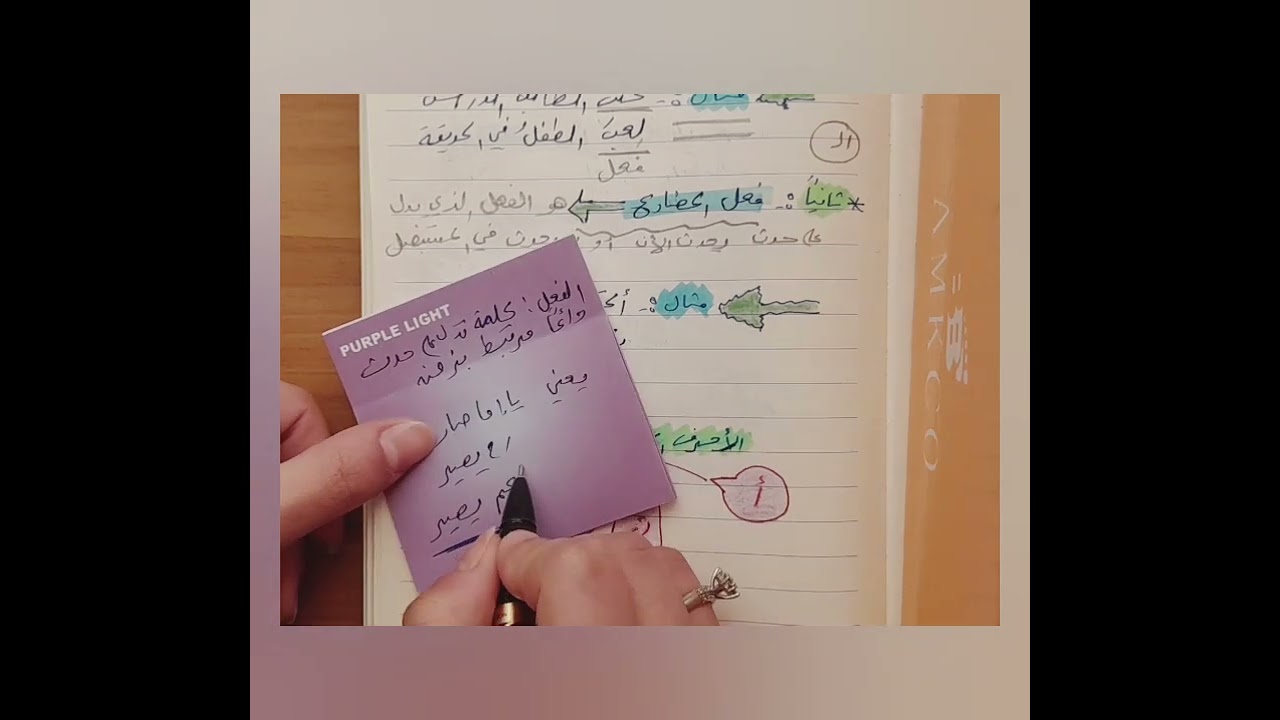 مثال :-
لعب الطفلُ في الحديقة
فعل
ال
* ثانياً :- فعل المضارع هو الفعل الذي يدل
على حدث يحدث الآن أو يحدث في المستقبل
مثال :-
الأحرف
أ
PURPLE LIGHT
الفعل : كلمة تدل على حدث
دائماً مرتبط بزمنه
يعني يا إما صار
يصير
عم يصير
AMKCO